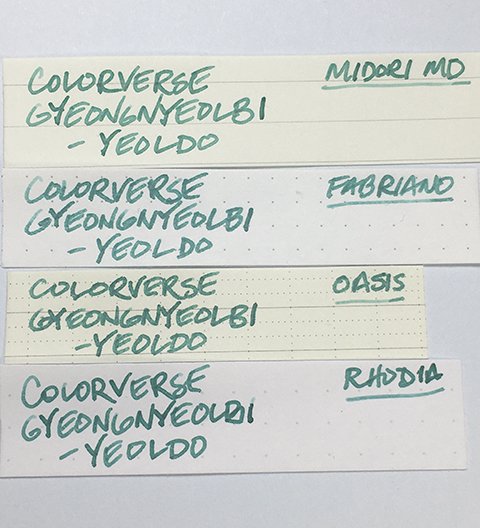 COLORVERSE MIDORI MD
GYEONGNYEOLBI
- YEOLDO
COLORVERSE FABRIANO
GYEONGNYEOLBI
- YEOLDO
COLORVERSE OASIS
GYEONGNYEOLBI
- YEOLDO
COLORVERSE RHODIA
GYEONGNYEOLBI
- YEOLDO